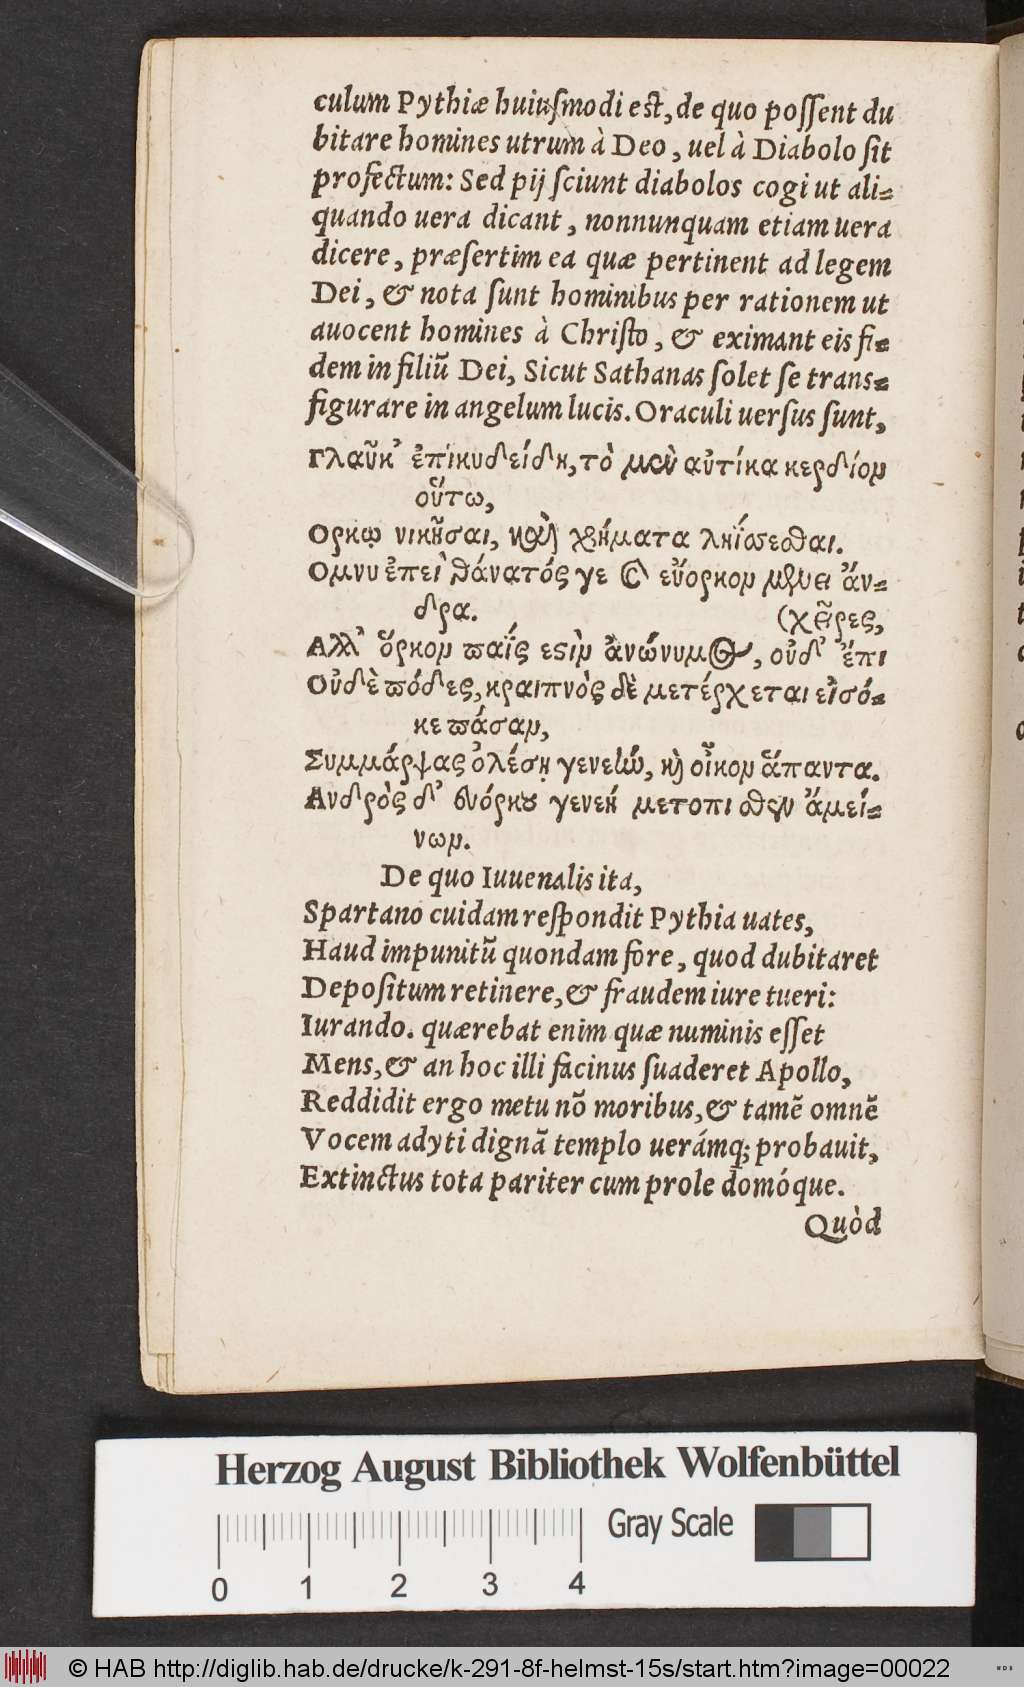 culum Pythiæ huiuſmodi eſt, de quo poſſent du
bitare homines utrum à Deo, uel à Diabolo ſit
profectum: Sed pij ſciunt diabolos cogi ut ali-
quando uera dicant, nonnunquam etiam uera
dicere, præſertim ea quæ pertinent ad legem
Dei, & nota ſunt hominibus per rationem ut
auocent homines à Chriſto, & eximant eis fi-
dem in filiũ Dei, Sicut Sathanas ſolet ſe trans-
figurare in angelum lucis. Oraculi uerſus ſunt,
Γλαῦκ' ἐπικυδείδη, τὸ μὲν αὐτίκα κερδίον
οὕτω,
Ορκῳ νικῆσαι, καὶ χρήματα ληΐσσεσθαι.
Ομνυ ἐπεὶ θάνατός γε καὶ εὔορκον μένει ἄν-
δρα.
(χεῖρες,
Αλλ' ὅρκου παΐς ἐστὶν ἀνώνυμος, οὐδ' ἔπι
Οὐδὲ πόδες, κραιπνὸς δὲ μετέρχεται εἰσό-
κε πάσαν,
Συμμάρψας ὀλέσῃ γενεὴν, καὶ οἶκον ἅπαντα.
Ανδρὸς δ' εὐόρκου γενεή μετόπισθεν ἄμεί-
νων.
De quo Iuuenalis ita,
Spartano cuidam reſpondit Pythia uates,
Haud impunitũ quondam fore, quod dubitaret
Depoſitum retinere, & fraudem iure tueri:
Iurando. quærebat enim quæ numinis eſſet
Mens, & an hoc illi facinus ſuaderet Apollo,
Reddidit ergo metu nõ moribus, & tamẽ omnẽ
Vocem adyti dignã templo uerámq; probauit,
Extinctus tota pariter cum prole domóque.
Quòd
Herzog August Bibliothek Wolfenbüttel
Gray Scale
0 1 2 3 4
© HAB http://diglib.hab.de/drucke/k-291-8f-helmst-15s/start.htm?image=00022